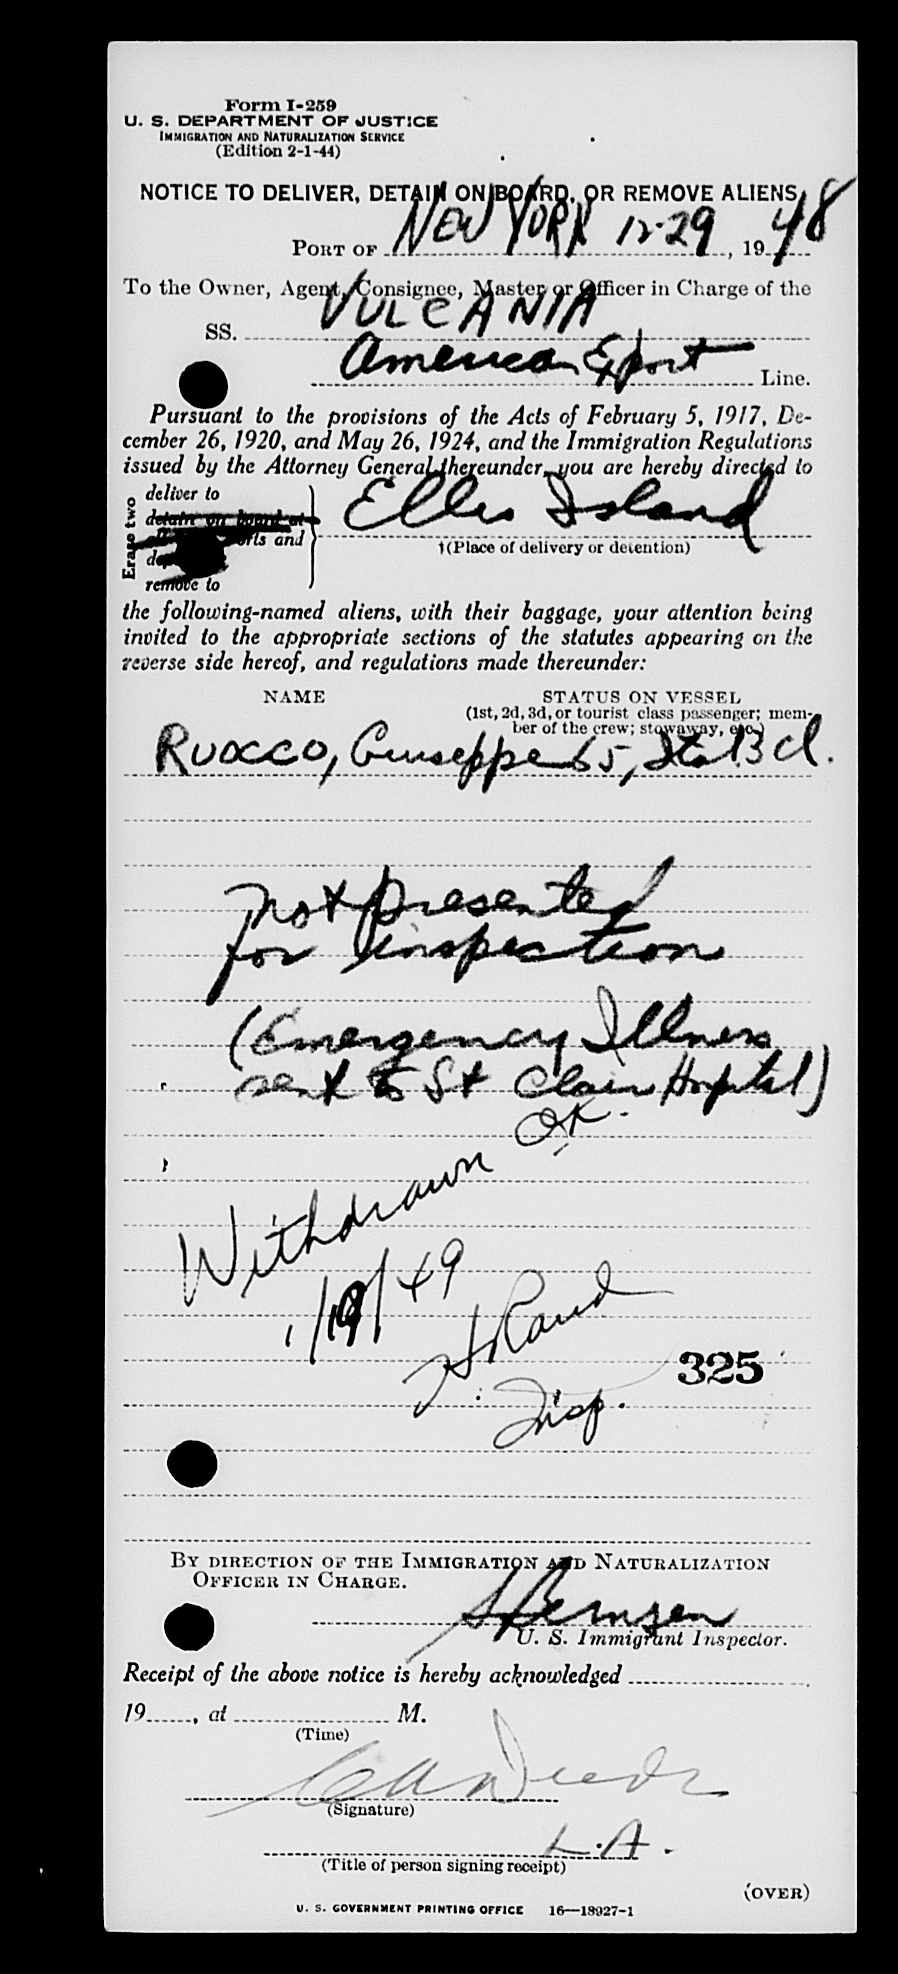 Form I-259
U. S. DEPARTMENT OF JUSTICE
IMMIGRATION AND NATURALIZATION SERVICE
(Edition 2-1-44)
NOTICE TO DELIVER, DETAIN ON BOARD, OR REMOVE ALIENS
PORT OF NEW YORK 12-29, 1948
To the Owner, Agent, Consignee, Master or Officer in Charge of the
SS. VULCANIA
American Export Line.
Pursuant to the provisions of the Acts of February 5, 1917, De-
cember 26, 1920, and May 26, 1924, and the Immigration Regulations
issued by the Attorney General thereunder, you are hereby directed to
Erase two
deliver to
detain on board at
remove to
Ellis Island
†(Place of delivery or detention)
the following-named aliens, with their baggage, your attention being
invited to the appropriate sections of the statutes appearing on the
reverse side hereof, and regulations made thereunder:
NAME STATUS ON VESSEL
(1st, 2d, 3d, or tourist class passenger; mem-
ber of the crew; stowaway, etc.)
Ruocco, Giuseppe 65, Ital. 3 cl.
not presented
for inspection
(Emergency Illness
sent to St Clair Hospital)
OK.
Withdrawn
1/19/49
Insp.
325
BY DIRECTION OF THE IMMIGRATION AND NATURALIZATION
OFFICER IN CHARGE.
U. S. Immigrant Inspector.
Receipt of the above notice is hereby acknowledged
19, at M.
(Time)
(Signature)
L.A.
(Title of person signing receipt)
(OVER)
U. S. GOVERNMENT PRINTING OFFICE 16—18927-1